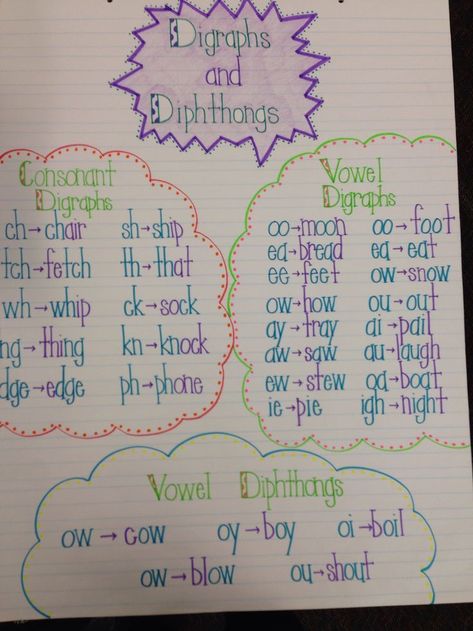 Digraphs
and
Diphthongs
Consonant
Digraphs
ch→chair sh→ship
tch→fetch th→that
wh→whip ck→sock
ng→thing kn→knock
dge→edge ph→phone
Vowel
Digraphs
oo→moon oo→foot
ea→bread ea→eat
ee→feet ow→snow
ow→how ou→out
ay→tray ai→pail
aw→saw au→laugh
ew→stew oa→boat
ie→pie igh→night
Vowel Diphthongs
ow→cow oy→boy oi→boil
ow→blow ou→shout